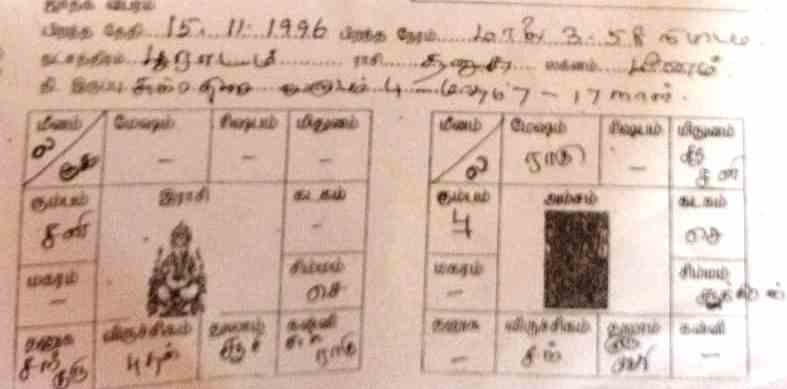 ஜாதக விபரம்
பிறந்த தேதி 15.11.1996 பிறந்த நேரம் மாலை 3.58
நட்சத்திரம் பூராடம் ராசி தனுசு லக்னம் மீனம்
தி. இருப்பு சுக்ர திசை வருடம் 4 மாதம் 7 - 17 நாள்.
மீனம் மேஷம் ரிஷபம் மிதுனம்
ல - - -
கும்பம் இராசி கடகம்
சனி -
மகரம் சிம்மம்
- செ
தனுசு விருச்சிகம் துலாம் கன்னி
சந் குரு புதன் ராகு
மீனம் மேஷம் ரிஷபம் மிதுனம்
ல ராகு - சனி
கும்பம் அம்சம் கடகம்
பு செ
மகரம் சிம்மம்
- சுக்கிரன்
தனுசு விருச்சிகம் துலாம் கன்னி
- சந் -